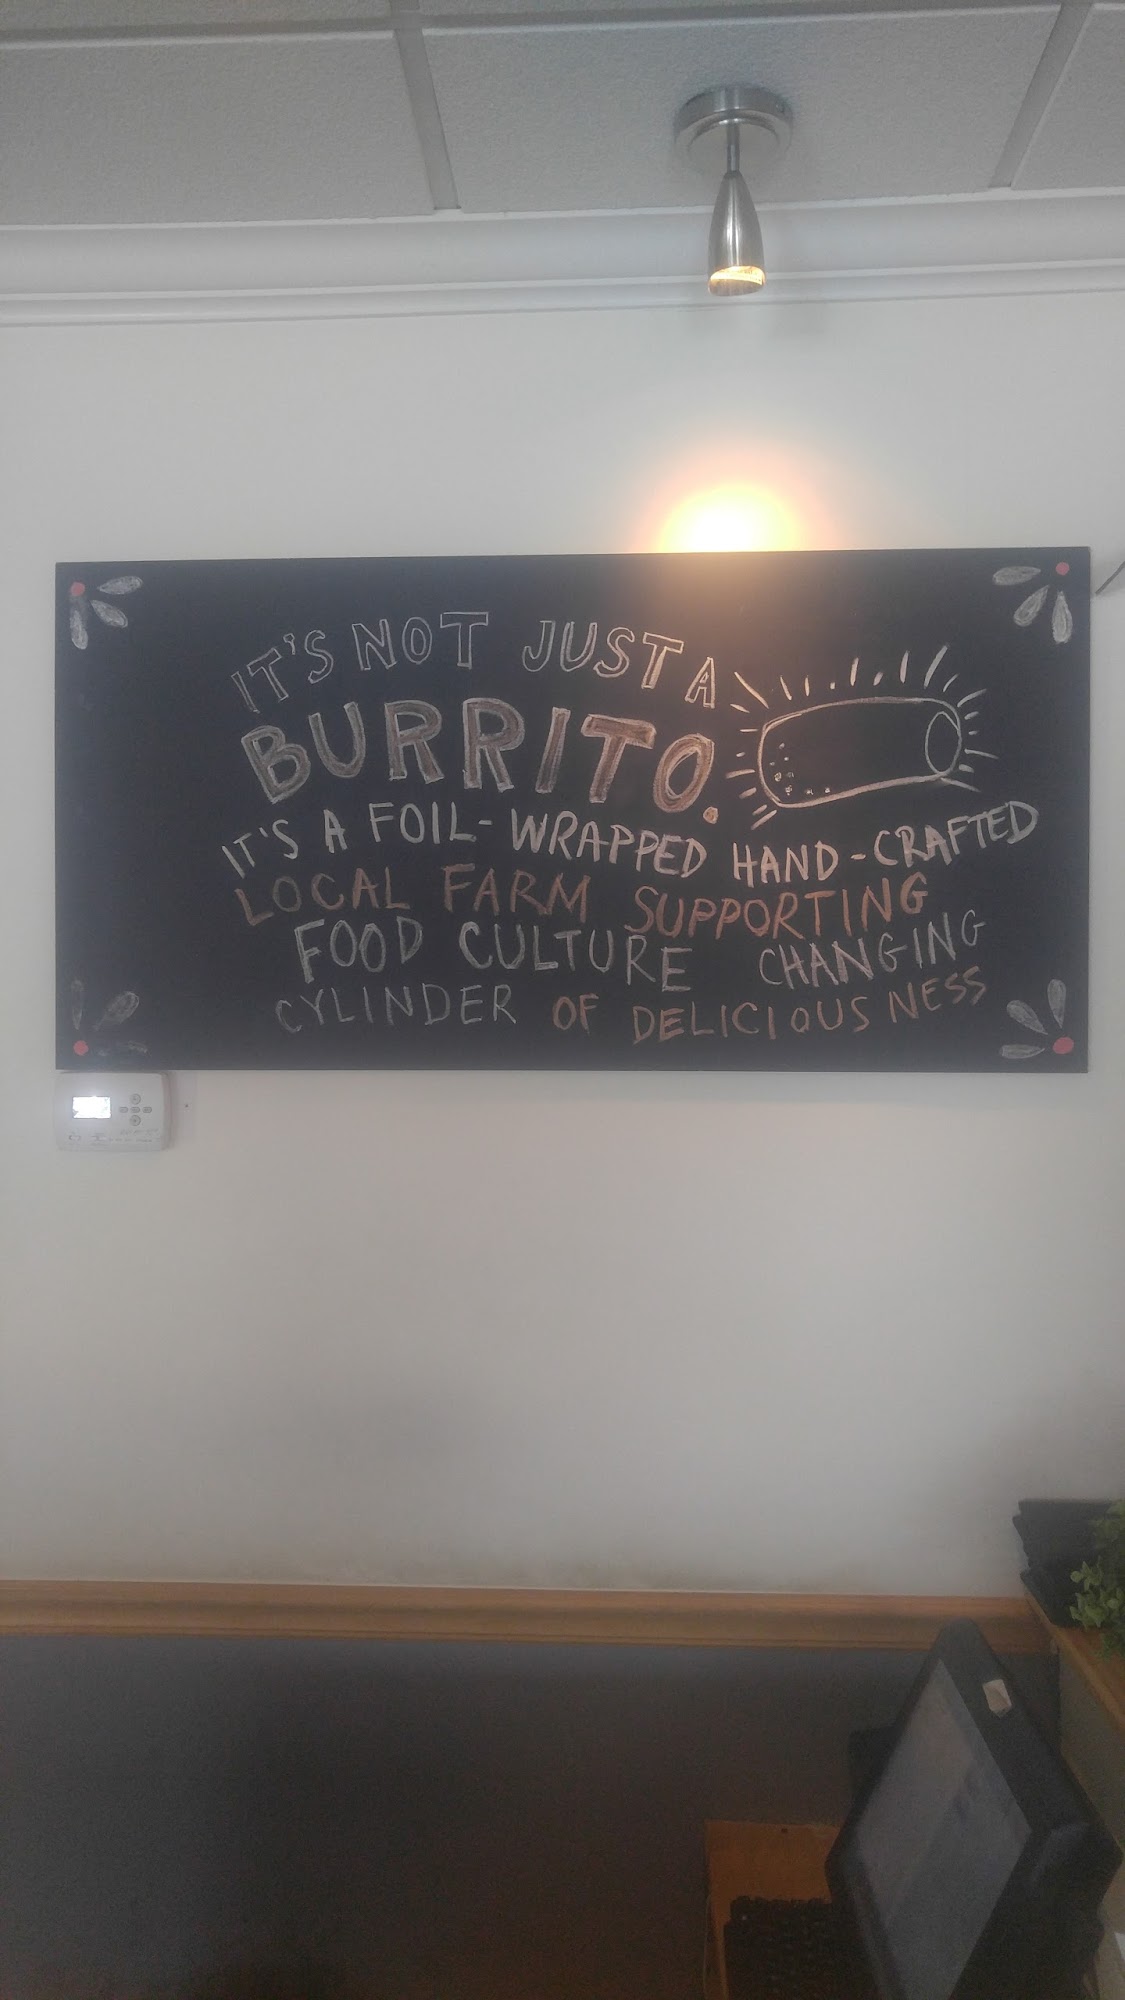 IT'S NOT JUST A
BURRITO.
IT'S A FOIL-WRAPPED HAND-CRAFTED
LOCAL FARM SUPPORTING
FOOD CULTURE CHANGING
CYLINDER OF DELICIOUSNESS